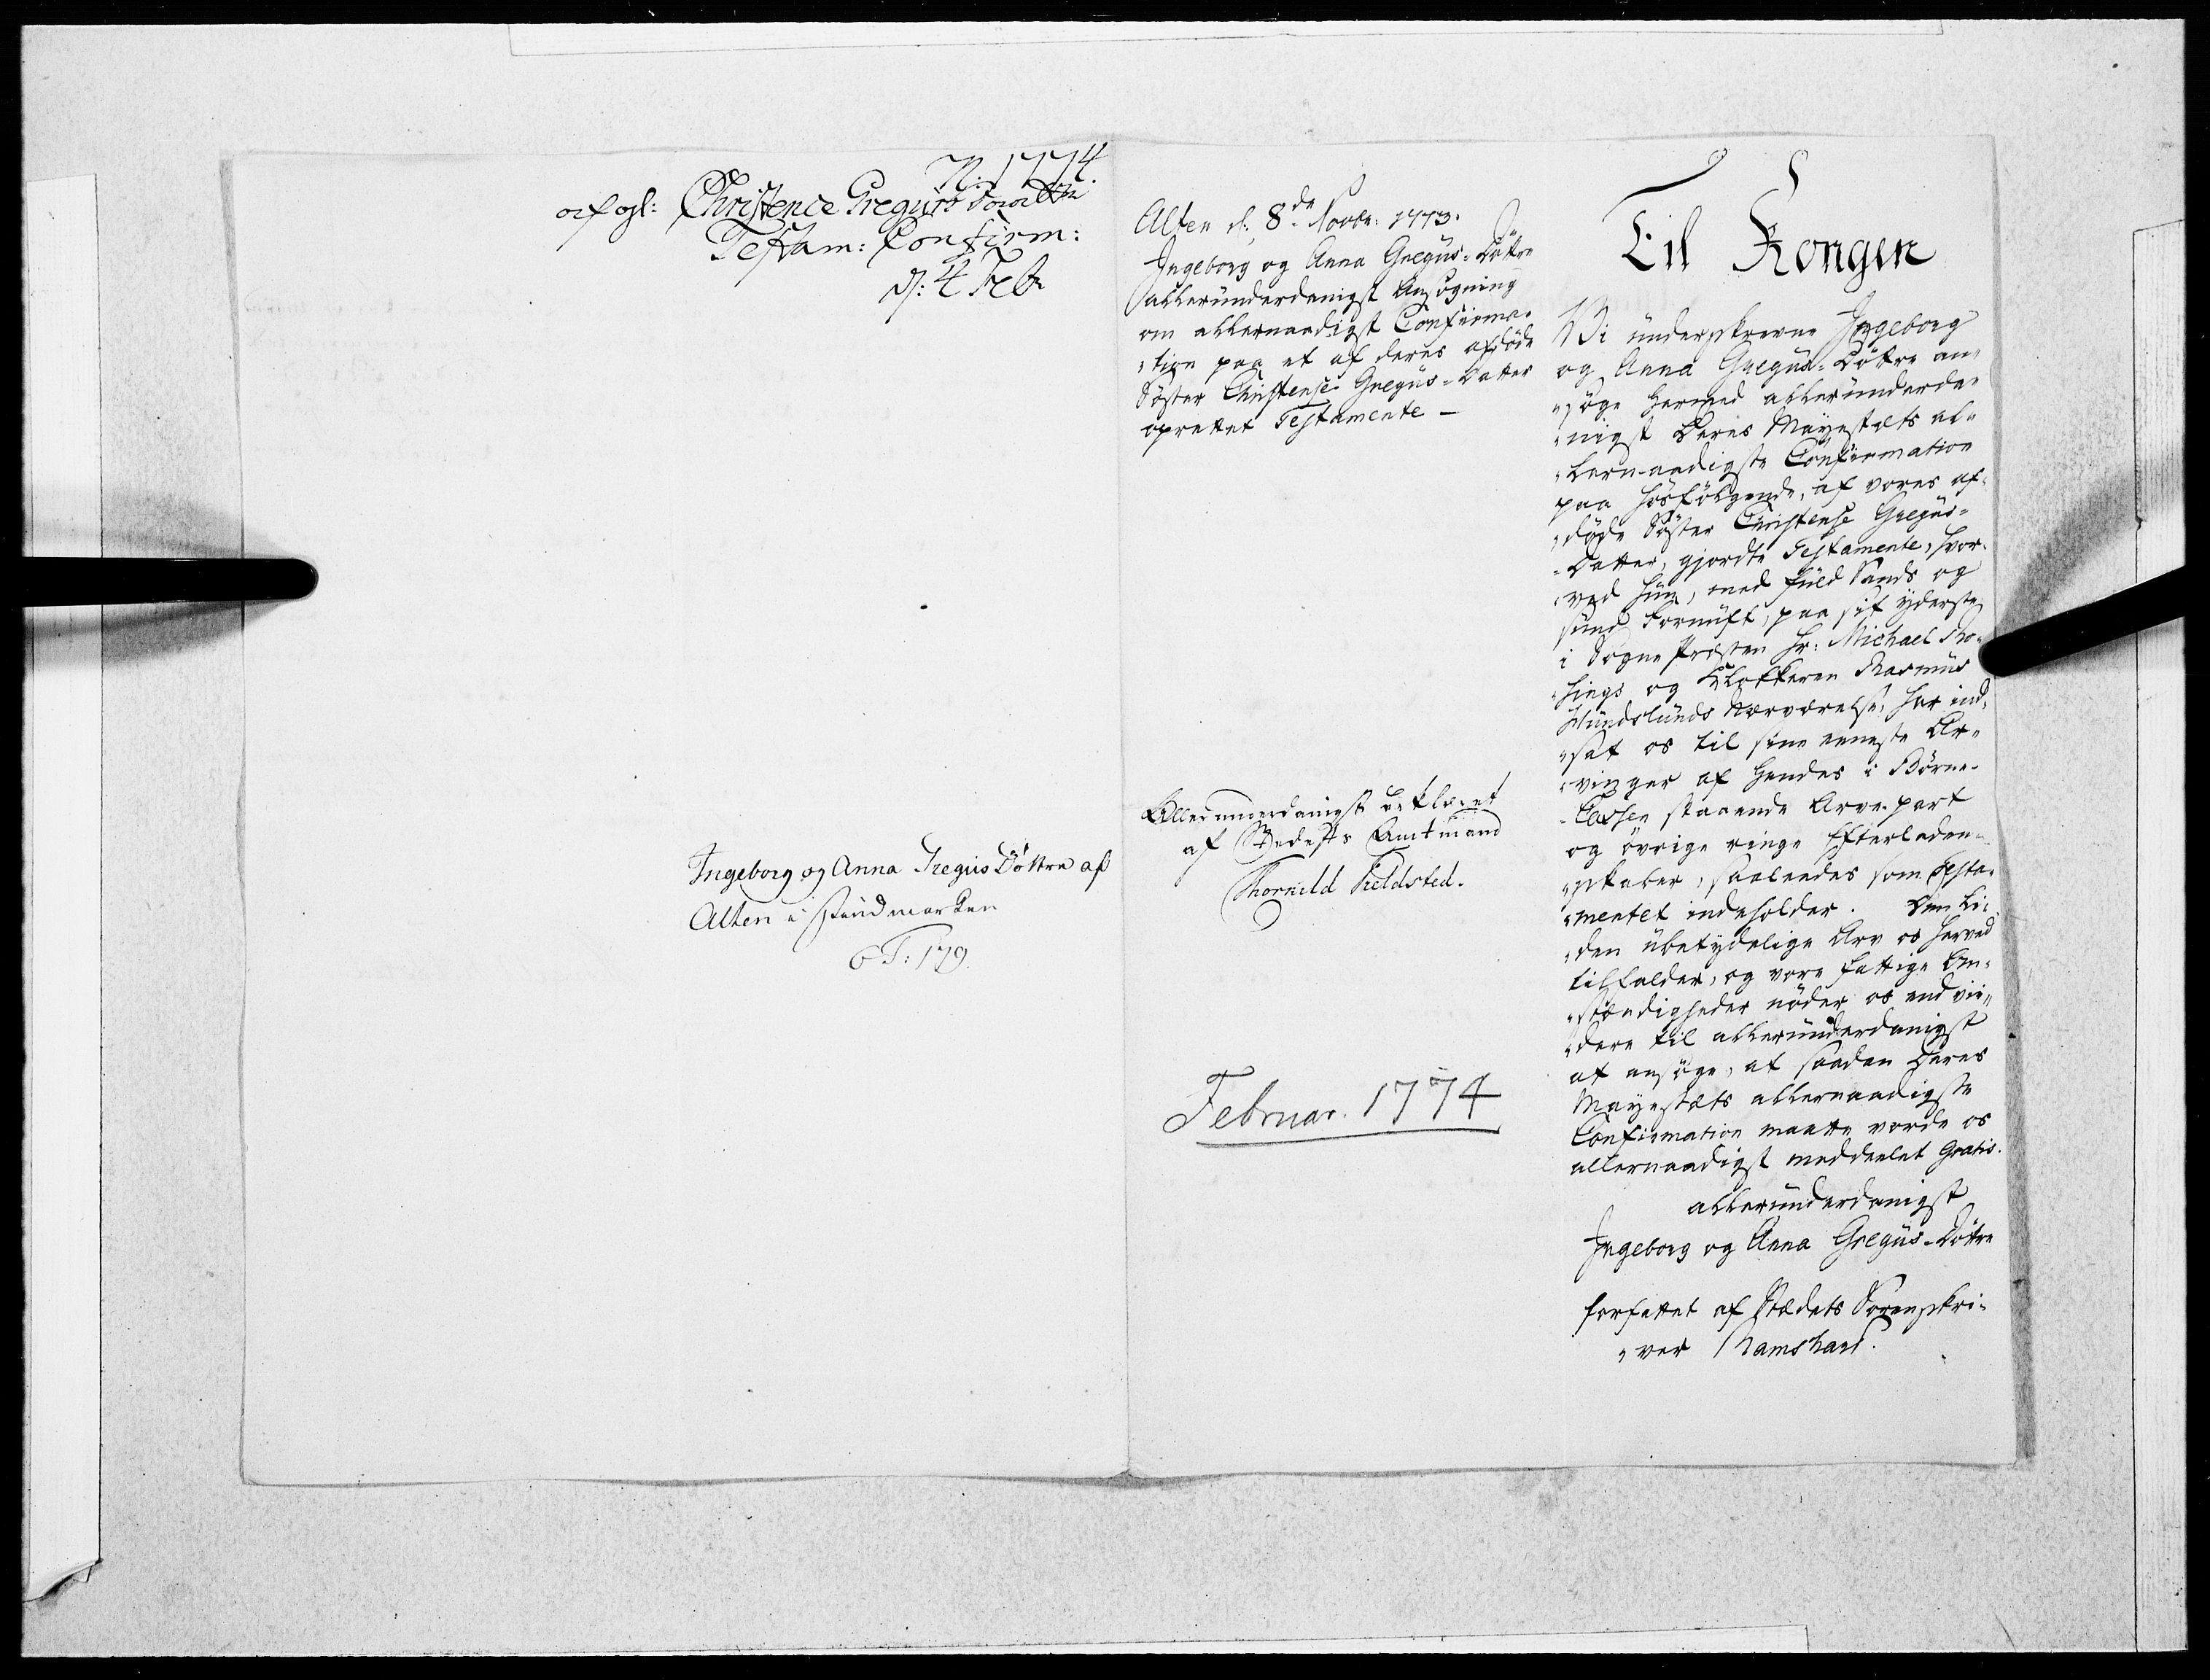 N: 1774.
Christence Gregus
Testam: Confirm:
d: 4 Febr
Ingeborg og Anna Gregus Döttre af
Alten i Findmarken
6 T: 179.
Alten d: 8de Novbr: 1773.
Ingeborg og Anna Gregus-Döttre
allerunderdanigst Ansøgning
om allernaadigst Confirma-
tion paa et af deres afdöde
Söster Christense Gregus-Datter
oprettet Testamente —
Allerunderdanigst
af Stedets Amtmand
Thorkild Fieldsted.
Februar. 1774
Til Kongen
Vi underskrevne Ingeborg
og Anna Gregus-Döttre an-
söge hermed allerunderda-
nigst Deres Mayestæts al-
lernaadigste Confirmation
paa hosfölgende, af vores af-
döde Söster Christense Gregus-
Datter, gjordte Testamente, hvor-
ved hun, med fuld Sands og
sund Fornuft, paa sit yderste
i Sogne Præsten Hr: Michael Tro-
hings og Klokkeren Rasmus
Hundslunds Nærværelse, har ind-
sat os til sine eeneste Ar-
vinger af hendes i Börne-
Cassen staaende Arve-part
og övrige ringe Efterladen-
skaber, saaledes som Testa-
mentet indeholder. Den li-
den ubetydelige Arv os herved
tilfalder, og vore fattige Om-
stændigheder nöder os end vii-
dere til allerunderdanigst
at ansöge, at saadan Deres
Mayestæts allernaadigste
Confirmation maatte vorde os
allernaadigst meddeelet Gratis.
allerunderdanigst
Ingeborg og Anna Gregus-Döttre
forfattet af Stædets Sorenskri-
ver Ramshart.